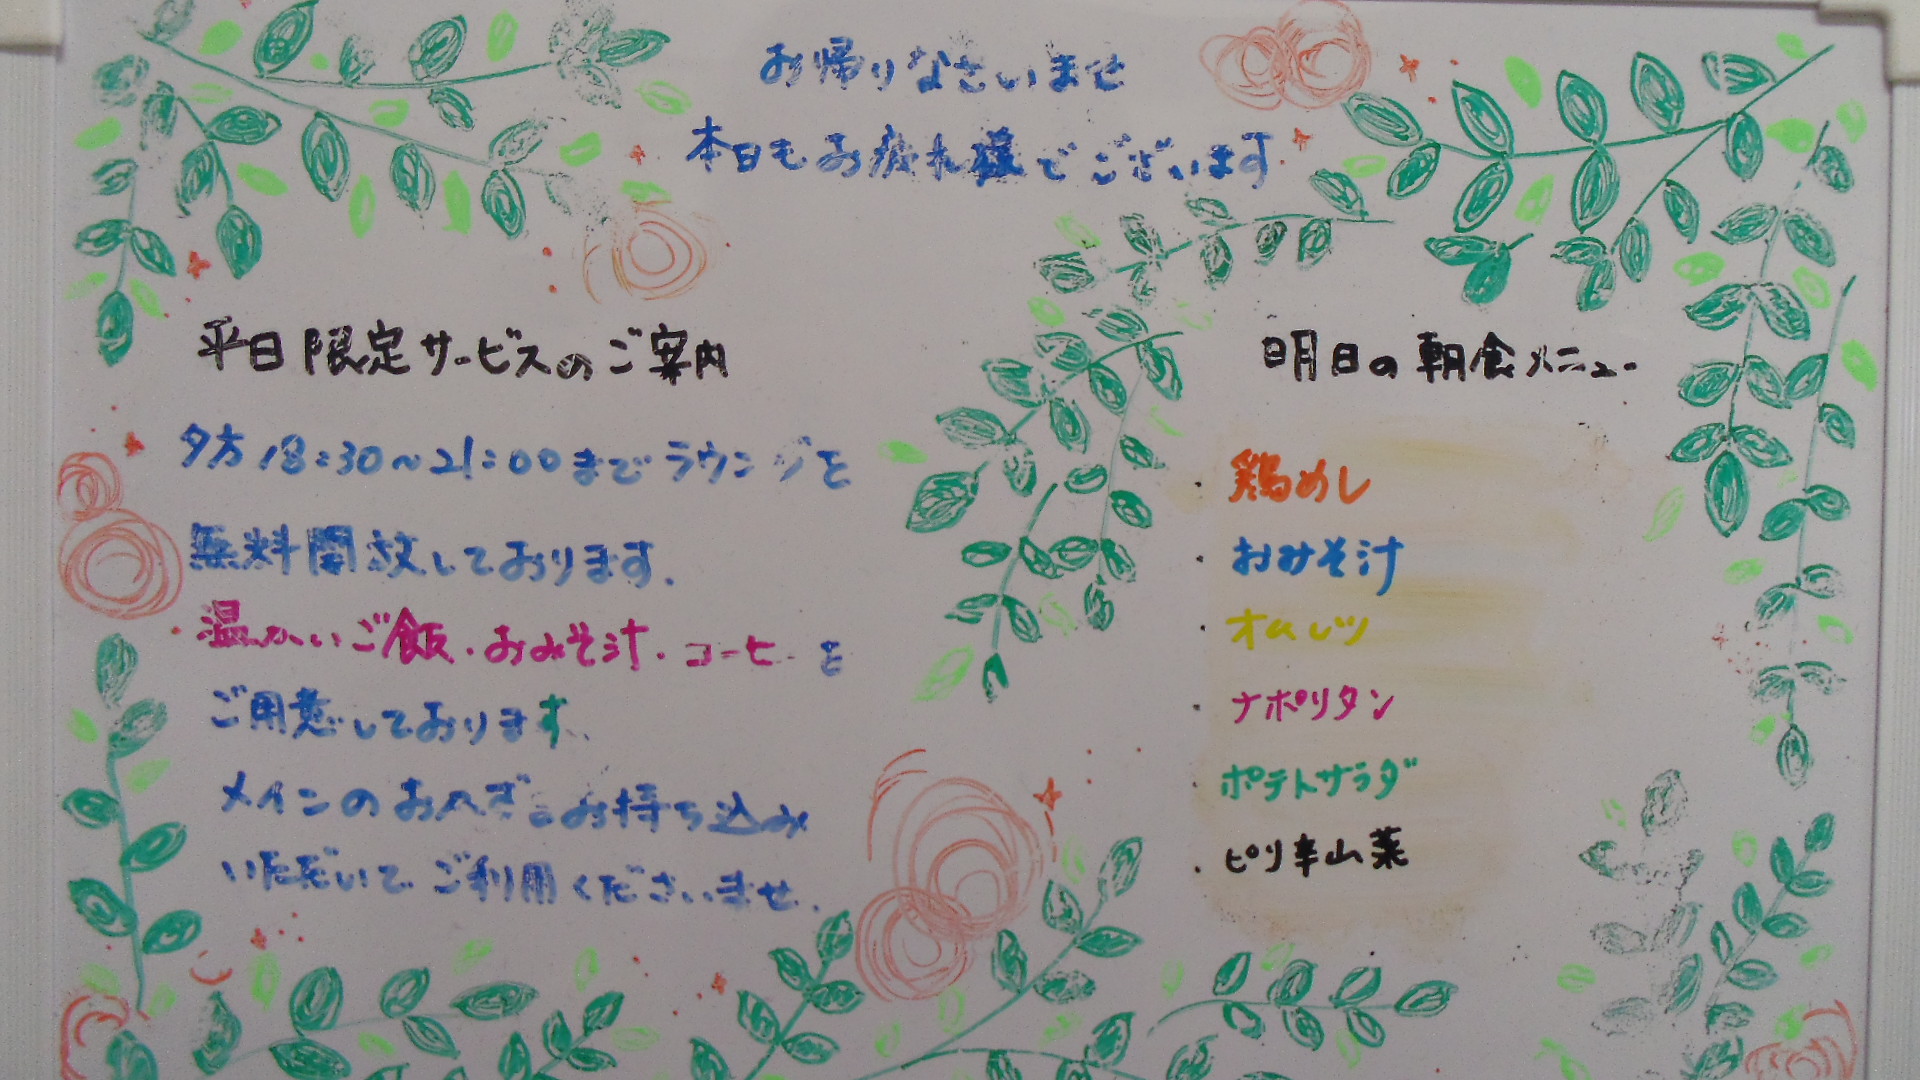 お帰りなさいませ
本日もお疲れ様でございます
平日限定サービスのご案内
夕方18:30~21:00までラウンジを
無料開放しております.
温かいご飯・おみそ汁・コーヒーを
ご用意しております.
メインのおかずはお持ち込み
いただいてご利用くださいませ.
明日の朝食メニュー
・鶏めし
・おみそ汁
・オムレツ
・ナポリタン
・ポテトサラダ
・ピリ辛山菜